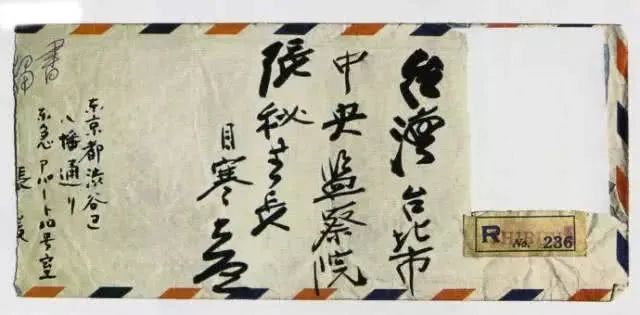 台灣台北市
中央監察院
張秘書長
目寒
書留
東京都渋谷区
八幡通り
東急アパート 号室
張
R No. 236